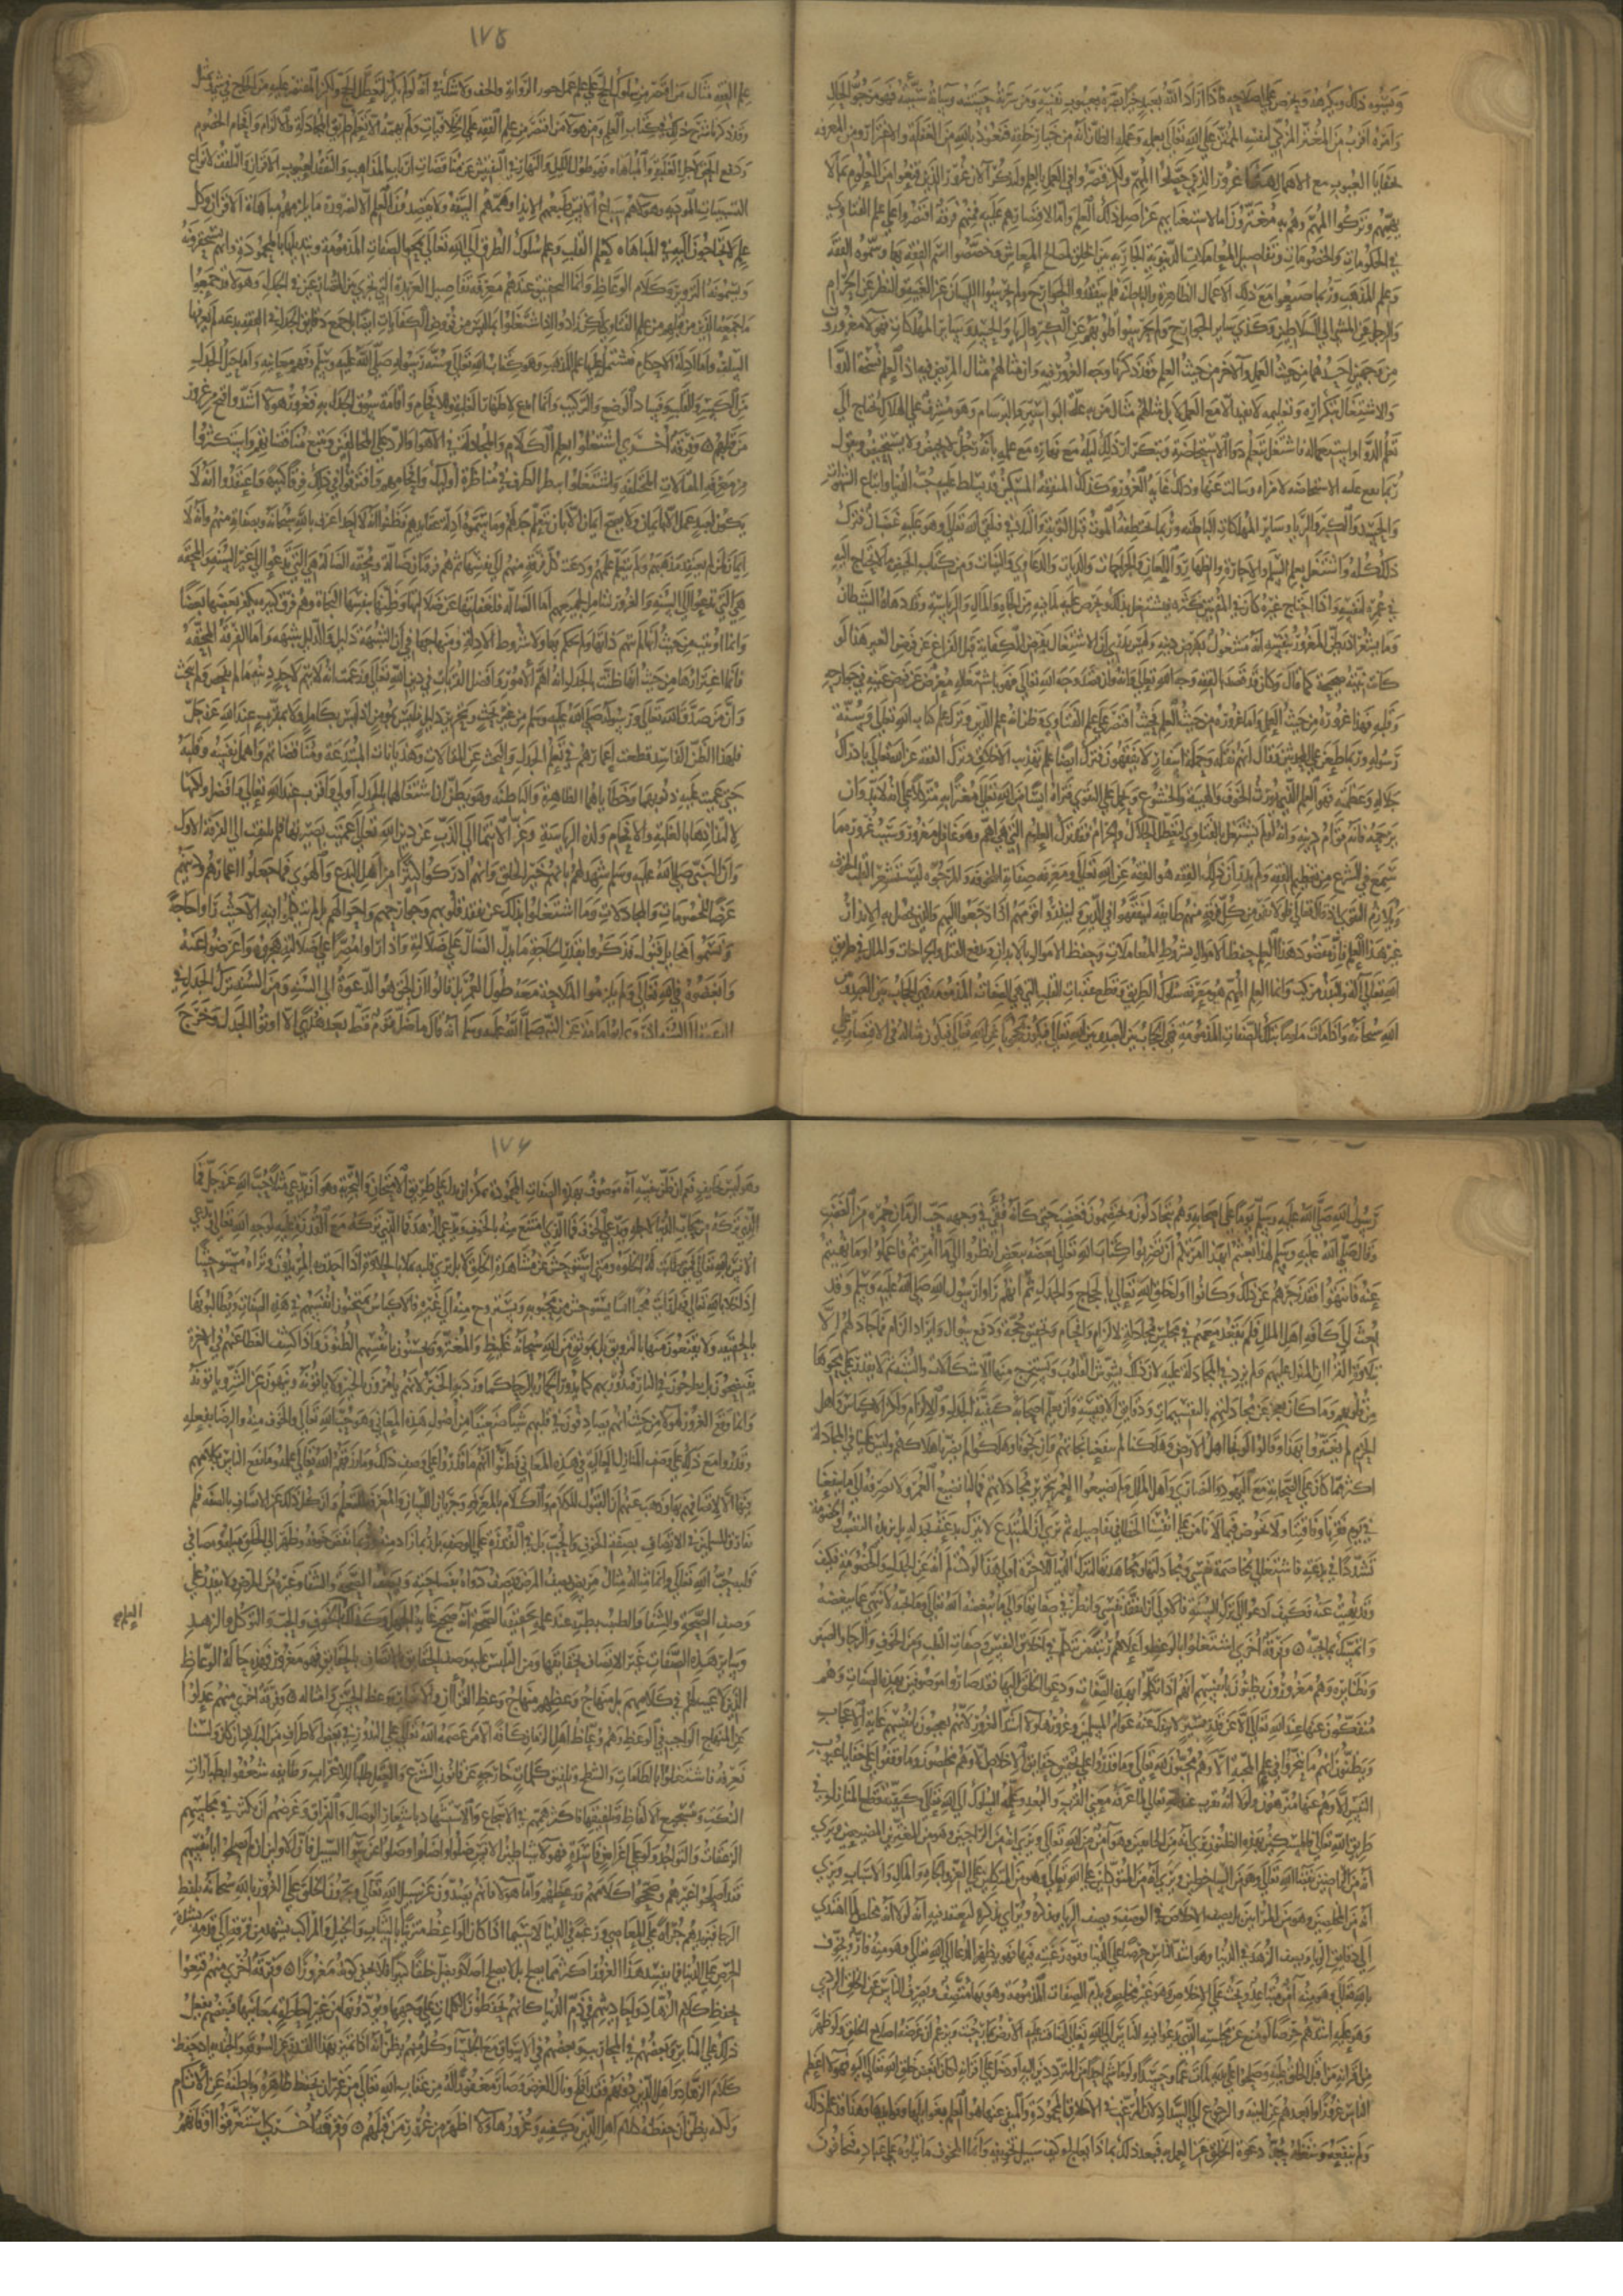 ويسوءه ذلك ويكرهه ويحرص على اصلاحه فاذا اراد الله بعبد خيرا بصره بعيوب نفسه ومن سرته حسنته وساءته سيئته فهو مرجو الحال
وامره اقرب من المغتر المزكي لنفسه الممتن على الله تعالى بعمله وعلمه الظان انه من خيار خلقه فنعوذ بالله من الغفلة والاغترار ومن المعرفة
بخفايا العيوب مع الاهمال هذا غرور الذين حصلوا المهم ولكن قصروا في العمل بالعلم ولنذكر الآن غرور الذين قنعوا من العلوم بما لا
يهمهم وتركوا المهم وهم به مغترون اما لاستغنائهم عن اصل ذلك العلم واما لاقتصارهم عليه فمنهم فرقة اقتصروا على علم الفتاوي
في الحكومات والخصومات وتفاصيل المعاملات الدنيوية الجارية بين الخلق لمصالح المعاش وخصصوا اسم الفقه بها وسموه الفقه
وعلم المذهب وربما ضيعوا مع ذلك الاعمال الظاهرة والباطنة فلم يتفقدوا الجوارح ولم يحرسوا اللسان عن الغيبة والبطن عن الحرام
والرجل عن المشي الى السلاطين وكذى سائر الجوارح ولم يحرسوا قلوبهم عن الكبر والريا والحسد وسائر المهلكات فهولا مغرورون
من وجهين احدهما من حيث العمل والآخر من حيث العلم وقد ذكرنا وجه الغرور فيه وان مثالهم مثال المريض اذا تعلم نسخة الدوا
والاشتغال بتكراره وتعليمه لا بل مثالهم مثال من به علة البواسير والبرسام وهو مشرف على الهلاك محتاج الى
تعلم الدوا واستعماله فاشتغل بتعلم دوا الاستحاضة وبتكرار ذلك ليلا ونهارا مع علمه بانه رجل لا يحيض ولا يستحيض ويقول
ربما تقع علة الاستحاضة لامراة وسالت عنها وذلك غاية الغرور وكذلك المتفقه المسكين قد يسلط عليه حب الدنيا واتباع الشهوات
والحسد والكبر والريا وسائر المهلكات الباطنة وربما تختطفه الموت قبل التوبة والتلافي فيلقى الله تعالى وهو عليه غضبان فترك
ذلك كله واشتغل بعلم السلم والاجارة والظهار واللعان والجراحات والديات والدعاوي والبينات ومن كتاب الحيض ولا يحتاج اليه
في عمره لنفسه واذا احتاج غيره كان في المفتين كثرة فيشتغل بذلك ويحرص عليه لما فيه من الجاه والمال والرياسة وقد دهاه الشيطان
وما يشعر اذ يظن المغرور بنفسه انه مشغول بفرض دينه وليس يدري ان الاشتغال بفرض الكفاية قبل الفراغ عن فرض العين هذا لو
كانت نيته صحيحة كما قال وكان قد قصد بالفقه وجه الله تعالى فانه وان قصد وجه الله تعالى فهو باشتغاله معرض عن فرض عينه في جوارحه
وقلبه فهذا غروره من حيث العمل واما غروره من حيث العلم فحيث اقتصر على علم الفتاوي وظن انه علم الدين وترك علم كتاب الله تعالى وسنة
رسوله وربما طعن على المحدثين فقال انهم نقلة وحملة اسفار لا يفقهون فترك ايضا علم تهذيب الاخلاق وترك الفقه عن الله تعالى بادراك
جلاله وعظمته فهو العلم الذي يورث الخوف والهيبة والخشوع ويحمل على التقوى فتراه آمنا من الله تعالى مغترا به متكلا على انه لا بد وان
يرحمه فانه قوام دينه وانه لو لم يشتغل بالفتاوي لتعطل الحلال والحرام فقد ترك العلوم التي هي اهم وهو غافل مغرور وسبب غروره ما
سمع في الشرع من تعظيم الفقه ولم يدر ان ذلك الفقه هو الفقه عن الله تعالى ومعرفة صفاته المخوفة والمرجوة ليستشعر القلب الخوف
ويلازم التقوى اذ قال تعالى فلولا نفر من كل فرقة منهم طائفة ليتفقهوا في الدين ولينذروا قومهم اذا رجعوا اليهم والذي يحصل به الانذار
غير هذا العلم فان مقصود هذا العلم حفظ الاموال بشروط المعاملات وحفظ الاموال بالابدان ودفع القتل والجراحات والمال في طريق
الله تعالى آلة والبدن مركب وانما العلم المهم هو معرفة سلوك الطريق وقطع عقبات القلب التي هي الصفات المذمومة فهي الحجاب بين العبد وبين
الله سبحانه واذا مات ملوثا بتلك الصفات المذمومة فهي الحجاب بين العبد وبين الله تعالى فيكون محجوبا عن الله تعالى فيكون مثاله في الاقتصار على
١٧٥
علم الفقه مثال من اقتصر من سلوك طريق الحج على علم خرز الراوية والخف ولا شك في انه لو لم يكن لتعطل الحج ولكن المقتصر عليه ليس من الحاج في شيء
وقد ذكرنا شرح ذلك في كتاب العلم ومن هولا من اقتصر من علم الفقه على الخلافيات ولم يهمه الا تعلم طريق المجادلة والالزام وافحام الخصوم
ودفع الحق لاجل الغلبة والمباهاه فهو طول الليل والنهار في التفتيش عن مناقضات ارباب المذاهب والتفقد لعيوب الاقران والتلقف لانواع
التسبيبات الموذية وهولا هم سباع الانس طبعهم الايذا وهمهم السفه ولا يقصدون العلم الا لضرورة ما يلزمهم لمباهاة الاقران وكل
علم لا يحتاجون اليه في المباهاه كعلم القلب وعلم سلوك الطريق الى الله تعالى بمحو الصفات المذمومة وتبديلها بالمحمودة فانهم يستحقرونه
ويسمونه التزويق وكلام الوعاظ وانما التحقيق عندهم معرفة تفاصيل العربدة التي تجري بين المتصارعين في الجدل وهولا قد جمعوا
ما جمعه الذين من قبلهم من علم الفتاوي لكن زادوا اذ اشتغلوا بما ليس من فروض الكفايات ايضا بل جميع دقائق الجدل في الفقه بدعة لم يعرفها
السلف واما ادلة الاحكام فيشتمل عليها علم المذهب وهو كتاب الله تعالى وسنة رسوله صلى الله عليه وسلم وفهم معانيهما واما حيل الجدل
من الكسر والقلب وفساد الوضع والتركيب وانما ابدعت لاظهار الغلبة والافحام واقامة سوق الجدل به فغرور هولا اشد واقبح من غرور
من قبلهم وفرقة اخرى اشتغلوا بعلم الكلام والمجادلة في الاهوا والرد على المخالفين وتتبع مناقضاتهم واستكثروا
من معرفة المقالات المختلفة واشتغلوا بتعلم الطرق في مناظرة اوليك وافحامهم وافترقوا في ذلك فرقا كثيرة واعتقدوا انه لا
يكون لعبد عمل الا بايمان ولا يصح ايمان الا بان يتعلم جدلهم وما سموه ادلة عقايدهم وظنوا انه لا احد اعرف بالله سبحانه وبصفاته منهم وانه لا
ايمان لمن لم يعتقد مذهبهم ولم يتعلم علمهم ودعت كل فرقة منهم الى نفسها ثم هم فرقتان ضالة ومحقة فالضالة هي التي تدعوا الى غير السنة والمحقة
هي التي تدعوا الى السنة والغرور شامل لجميعهم اما الضالة فلغفلتها عن ضلالتها وظنها بنفسها النجاة وهم فرق كثيرة يكفر بعضها بعضا
وانما اوتيت من حيث انها لم تتهم رايها ولم تحكم اولا شروط الادلة ومنهاجها فراى الشبهة دليلا والدليل شبهة واما الفرقة المحقة
فانما اغترارها من حيث انها ظنت بالجدل انه اهم الامور وافضل القربات في دين الله تعالى وزعمت انه لا يتم لاحد دينه ما لم يفحص ولم يبحث
وان من صدق الله تعالى ورسوله صلى الله عليه وسلم من غير بحث وتحرير دليل فليس بمومن او ليس بكامل ولا مقرب عند الله عز وجل
فلهذا الظن الفاسد قطعت اعمارهم في تعلم الجدل والبحث عن المقالات وهذيانات المبتدعة ومناقضاتهم واهمل نفسه وقلبه
حتى عميت عليه ذنوبها وخطاياهما الظاهرة والباطنة وهو يظن ان اشتغالها بالجدل اولى واقرب عند الله تعالى وافضل ولكنها
لالتذاذها بالغلبة والافحام ولذة الرياسة وعز الانتما الى الذب عن دين الله تعالى عميت بصيرتها فلم تلتفت الى القرن الاول
وان النبي صلى الله عليه وسلم شهد لهم بانهم خير الخلق وانهم ادركوا كثيرا من اهل البدع والهوى فما جعلوا اعمارهم ودينهم
عرضا للخصومات والمجادلات وما اشتغلوا بذلك عن تفقد قلوبهم وجوارحهم واحوالهم بل لم يتكلموا فيه الا حيث راوا حاجة
وتوسموا مخايل قبول فذكروا بقدر الحاجة ما يدل الضال على ضلالته واذ راوا مصرا على ضلالته هجروه واعرضوا عنه
وابغضوه في الله تعالى ولم يلزموا الملاحاة معه طول العمر بل قالوا ان الحق هو الدعوة الى السنة ومن السنة ترك الجدل في
الدعوة الى السنة اذ روى ابو امامة عن النبي صلى الله عليه وسلم انه قال ما ضل قوم قط بعد هدى الا اوتوا الجدل وخرج
رسول الله صلى الله عليه وسلم يوما على اصحابه وهم يتجادلون ويختصمون فغضب حتى كانه فقئ في وجهه حب الرمان حمرة من الغضب
وقال صلى الله عليه وسلم الهذا بعثتم ابهذا امرتم ان تضربوا كتاب الله تعالى بعضه ببعض انظروا الى ما امرتم به فاعملوا وما نهيتم
عنه فانتهوا فقد زجرهم عن ذلك وكانوا اولى خلق الله تعالى بالحجاج والجدل ثم انهم راوا رسول الله صلى الله عليه وسلم وقد
بعث الى كافة اهل الملل فلم يقعد معهم في مجلس مجادلة لالزام وافحام وتحقيق حجة ودفع سوال وايراد الزام فما جادلهم الا
بتلاوة القرآن المنزل عليهم ولم يزد في المجادلة عليه لان ذلك يشوش القلوب ويستخرج منها الاشكالات والشبه ثم لا يقدر على محوها
من قلوبهم وما كان يعجز عن مجادلتهم بالتقسيمات ودقايق الاقيسة وان يعلم اصحابه كيفية الجدل والالزام ولكن الاكياس واهل
الحزم لم يغتروا بهذا وقالوا لو نجا اهل الارض وهلكنا لم تنفعنا نجاتهم ولو نجونا وهلكوا لم يضرنا هلاكهم وليس علينا في المجادلة
اكثر مما كان على الصحابة مع اليهود والنصارى واهل الملل ولم يضيعوا العمر بتحرير مجادلاتهم فما لنا نضيع العمر ولا نصرفه الى ما ينفعنا
في يوم فقرنا وفاقتنا ولا نخوض فيما لا نامن على انفسنا الخطا في تفاصيله ثم نرى ان المبتدع لا يترك بدعته بجدله بل يزيده التعصب والخصومة
تشددا في بدعته فاشتغالي بمخاصمة نفسي ومجادلتها ومجاهدتها لتترك الدنيا للآخرة اولى هذا لو كنت لم انه عن الجدل والخصومة فكيف
وقد نهيت عنه فكيف ادعوا الى السنة بترك السنة فالاولى ان اتفقد نفسي وانظر في صفاتها والى ما يبغضه الله تعالى وما يحبه لاتنزه عما يبغضه
واتمسك بما يحبه وفرقة اخرى اشتغلوا بالوعظ واعلاهم رتبة من يتكلم في اخلاق النفس وصفات القلب من الخوف والرجا والصبر
ونظايره وهم مغرورون يظنون بانفسهم انهم اذا تكلموا بهذه الصفات ودعوا الخلق اليها فقد صاروا موصوفين بهذه الصفات وهم
منفكون عنها عند الله تعالى الا عن قدر يسير لا ينفك عنه عوام المسلمين وغرور هولا اشد الغرور لانهم يعجبون بانفسهم غاية الاعجاب
ويظنون انهم ما تبحروا في علم المحبة الا وهم محبون لله تعالى وما قدروا على تحقيق دقايق الاخلاص الا وهم مخلصون وما وقفوا على خفايا عيوب
النفس الا وهم عنها منزهون ولولا انه مقرب عند الله تعالى لما عرفه معنى القرب والبعد وعلم السلوك الى الله تعالى وكيفية قطع المنازل في
طريق الله تعالى فالمسكين بهذه الظنون يرى انه من الخائفين وهو آمن من الله تعالى ويرى انه من الراجين وهو من المغترين المضيعين ويرى
انه من الراضين بقضاء الله تعالى وهو من الساخطين ويرى انه من المتوكلين على الله تعالى وهو من المتكلين على العز والجاه والمال والاسباب ويرى
انه من المخلصين وهو من المرايين بل يصف الاخلاص فيترك الاخلاص في الوصف ويصف الريا ويذكره ويرائي بذكره ليعتقد فيه انه لولا انه مخلص لما اهتدى
الى دقايق الريا ويصف الزهد في الدنيا وهو اشد الناس حرصا على الدنيا وقوة رغبته فيها فهو يظهر الدعا الى الله تعالى وهو منه فار ويخوف
بالله تعالى وهو منه آمن ويحث على الاخلاص وهو غير مخلص ويذم الصفات المذمومة وهو بها متصف ويصرف الناس عن الخلق
وهو عليه اشدهم حرصا لو منع عن مجلسه الذي يدعوا فيه الناس الى الله تعالى لضاقت عليه الارض بما رحبت ويزعم ان غرضه اصلاح الخلق ولو ظهر
من اقرانه من اقبل الخلق عليه وصلحوا على يديه لمات غما وحسدا ولو اثنى احد من المترددين اليه على اقرانه لكان ابغض خلق الله تعالى اليه فهولا اعظم
الناس غرورا وابعدهم عن التنبه والرجوع الى السداد لان المرغب في الاخلاق المحمودة والمنفر عنها هو العلم بغوائلها وفوائدها وهذا قد علم ذلك
ولم ينفعه وشغله حب دعوة الخلق عن العمل به فبعد ذلك بماذا يعالج وكيف سبيل تخويفه وانما المخوف ما يتلوه على عباد الله فيخافون
١٧٦
وهو ليس بخائف نعم ان ظن بنفسه انه موصوف بهذه الصفات المحمودة يمكن ان يدل على طريق الامتحان والتجربة وهو ان يدعي مثلا حب الله عز وجل فما
الذي تركه من محاب الدنيا لاجله ويدعي الخوف فما الذي امتنع منه بالخوف ويدعي الزهد فما الذي تركه مع القدرة عليه لوجه الله تعالى ويدعي
الانس بالله تعالى فمتى طابت له الخلوة ومتى استوحش من مشاهدة الخلق لا بل يرى قلبه ممتلئا بالحلاوة اذا احدق به المريدون وتراه مستوحشا
اذا خلا بالله تعالى فهل رايت محبا يستوحش من محبوبه ويستروح منه الى غيره فالاكياس يمتحنون انفسهم في هذه الصفات ويطالبونها
بالحقيقة ولا يقنعون منها بالتزويق بل بموثق من الله سبحانه غليظ والمغترون يحسنون بانفسهم الظنون واذا كشف الغطا عنهم في الآخرة
يفتضحون بل يطرحون في النار فتدور بهم كما يدور الحمار بالرحا كما ورد به الخبر لانهم يامرون بالخير ولا ياتونه وينهون عن الشر وياتونه
وانما وقع الغرور لهولا من حيث انهم يصادفون في قلبهم شيا ضعيفا من اصول هذه المعاني وهو حب الله تعالى والخوف منه والرضا بفعله
وقدروا مع ذلك على وصف المنازل العالية في هذه المعاني فظنوا انهم ما قدروا على وصف ذلك وما رزقهم الله تعالى علمه وما نفع الناس بكلامهم
فيها الا لاتصافهم بها وذهب عنهم ان القبول للكلام والكلام للمعرفة وجريان اللسان والمعرفة للعلم وان كل ذلك غير الاتصاف بالصفة فلم
يفارق آحاد المسلمين في الاتصاف بصفة الخوف والحب بل في القدرة على الوصف بل ربما زاد امنه وقل خوفه وظهر الى الخلق ميله وضعف في
قلبه حب الله تعالى وانما مثاله مثال مريض يصف المرض ويصف دواءه بفصاحته ويصف الصحة والشفا وغيره من المرضى لا يقدر على
وصف الصحة والشفا والطب يظن عند علمه بحقيقة الصحة انه صحيح غاية الجهل وكذلك العلم بالخوف والحب والتوكل والزهد
العلم
وساير هذه الصفات غير الاتصاف بحقايقها ومن التبس عليه وصف الحقايق بالاتصاف بالحقايق فهو مغرور فهذه حالة الوعاظ
الذين لا عيب لهم في كلامهم بل منهاج وعظهم منهاج وعظ القرآن والاخبار ووعظ الحسن وامثاله وفرقة اخرى منهم عدلوا
عن المنهاج الواجب في الوعظ وهم وعاظ اهل الزمان كافة الا من عصمه الله تعالى على الندور في بعض اطراف البلاد ان كان ولسنا
نعرفه فاشتغلوا بالطامات والشطح وتلفيق كلمات خارجة عن قانون الشرع والعقل طلبا للاغراب وطائفه شغفوا بطيارات
النكت وتسجيع الالفاظ وتلفيقها فاكثر همهم في الاسجاع والاستشهاد باشعار الوصال والفراق وغرضهم ان يكثر في مجلسهم
الزعقات والتواجد ولو على اغراض فاسدة فهولا شياطين الانس ضلوا واضلوا عن سوا السبيل فان الاولين ان لم يصلحوا انفسهم
فقد اصلحوا غيرهم وصححوا كلامهم ووعظهم واما هولا فانهم يصدون عن سبيل الله تعالى ويجرون الخلق على الغرور بالله سبحانه بلفظ
الرجا فيزيدهم جراة على المعاصي ورغبة في الدنيا لا سيما اذا كان الواعظ متزينا بالثياب والخيل والمراكب تشهد من فرقه الى قدمه شدة
الحرص على الدنيا فما يفسد هذا المغرور اكثر مما يصلح بل لا يصلح اصلا ويضل خلقا كثيرا فلا يخفى كونه مغرورا وفرقة اخرى منهم قنعوا
بحفظ كلام الزهاد واحاديثهم في ذم الدنيا كانهم يحفظون الكلمات على وجهها ويودونها من غير احاطة بمعانيها فبعضهم يفعل
ذلك على المنابر وبعضهم في المحاريب وبعضهم في الاسواق مع الجلسا وكل منهم يظن انه اذا تميز بهذا القدر عن السوقة والجندية اذ حفظ
كلام الزهاد واهل الدين دونهم فقد افلح ونال الغرض وصار مغفورا له من عقاب الله تعالى من غير ان يحفظ ظاهره وباطنه عن الآثام
ولكنه يظن ان حفظه لكلام اهل الدين يكفيه وغرور هولا اظهر من غرور من قبلهم وفرقة اخرى استغرقوا اوقاتهم